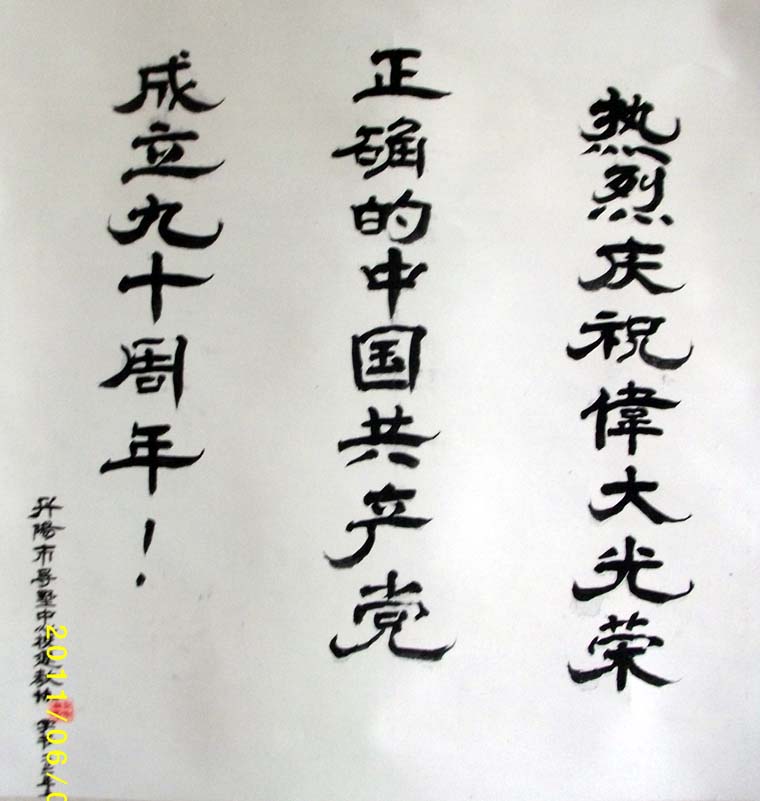 热烈庆祝偉大光荣
正确的中国共产党
成立九十周年！
丹陽市导墅中心校退教协
2011/06/0